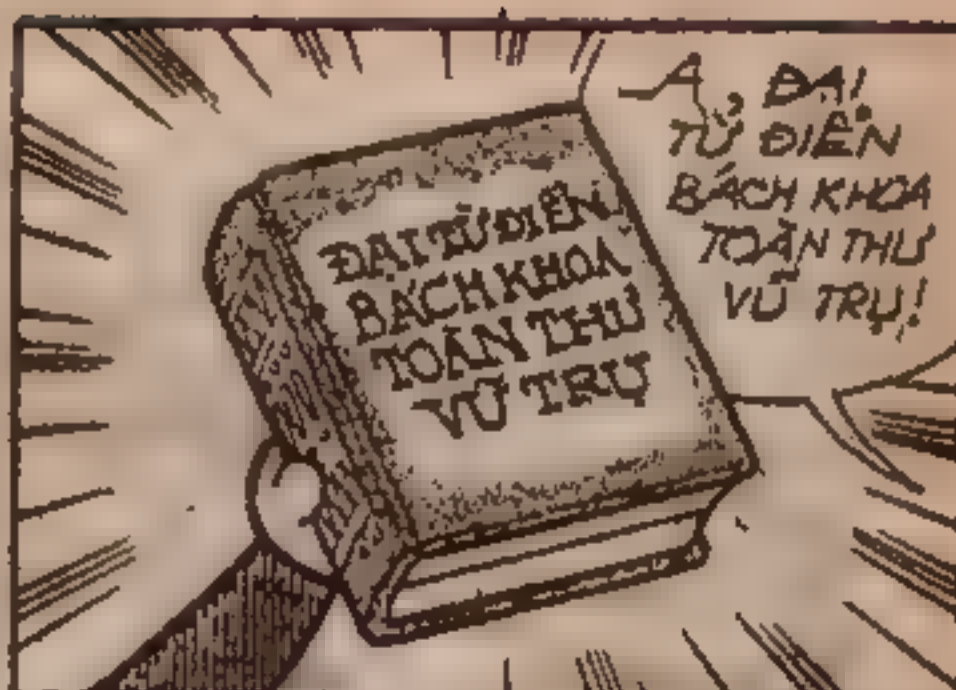 ĐẠI TỪ ĐIỂN
BÁCH KHOA
TOÀN THƯ
VŨ TRỤ
A, ĐẠI
TỪ ĐIỂN
BÁCH KHOA
TOÀN THƯ
VŨ TRỤ!